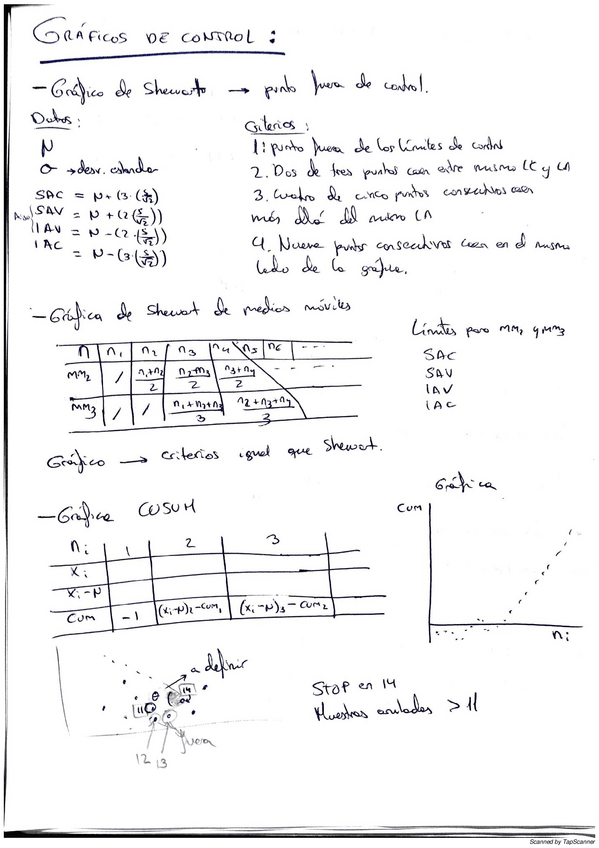 GRÁFICOS DE CONTROL:
- Gráfico de Shewarto → punto fuera de control.
Datos:
N
σ → desv. estandar
SAC = N + (3·(S/√2))
SAV = N + (2(S/√2))
IAV = N - (2·(S/√2))
IAC = N - (3·(S/√2))
Criterios:
1: punto fuera de los límites de control
2. Dos de tres puntos caen entre mismo LC y LA
3. Cuatro de cinco puntos consecutivos caen
más allá del mismo LA
4. Nueve puntos consecutivos caen en el mismo
lado de la gráfica.
- Gráfica de Shewart de medias móviles
n | n₁ | n₂ | n₃ | n₄ | n₅ | n₆ | ---
MM₂ | / | n₁+n₂/2 | n₂-n₃/2 | n₃+n₄/2 - - -
MM₃ | / | / | n₁+n₂+n₃/3 | n₂+n₃+n₄/3
Límites para MM₂ y MM₃
SAC
SAV
IAV
IAC
Gráfico → criterios igual que Shewart.
- Gráfica CUSUM
nᵢ | 1 | 2 | 3
xᵢ
xᵢ-N
CUM | -1 | (xᵢ-N)₂-CUM₁ | (xᵢ-N)₃-CUM₂
Gráfica
CUM
nᵢ
→ a definir
14
11
12 13
fuera
STOP en 14
Muestras anuladas > 11
Scanned by TapScanner